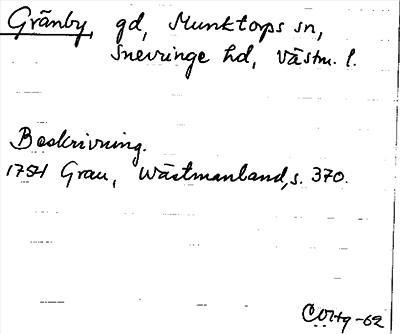 Gränby, gd, Munktorps sn,
Snevringe hd, Västm. l.
Beskrivning.
1754 Grau, Wästmanland, s. 370.
-62